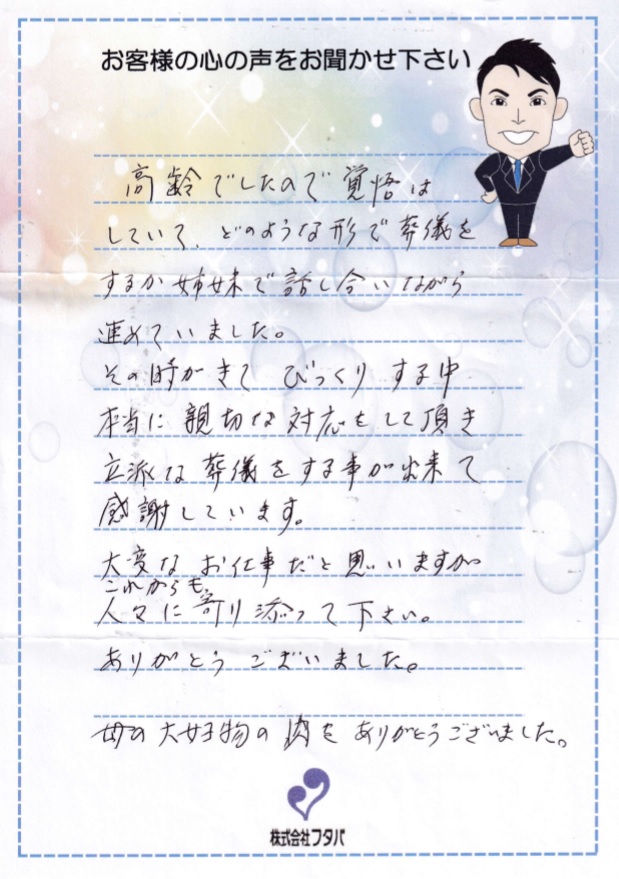 お客様の心の声をお聞かせ下さい
高齢でしたので覚悟は
していて、どのような形で葬儀を
するか姉妹で話し合いながら
進めていました。
その時がきて びっくりする中
本当に親切な対応をして頂き
立派な葬儀をする事が出来て
感謝しています。
大変なお仕事だと思いますが
これからも、
人々に寄り添って下さい。
ありがとうございました。
母の大好物の肉をありがとうございました。
株式会社フタバ